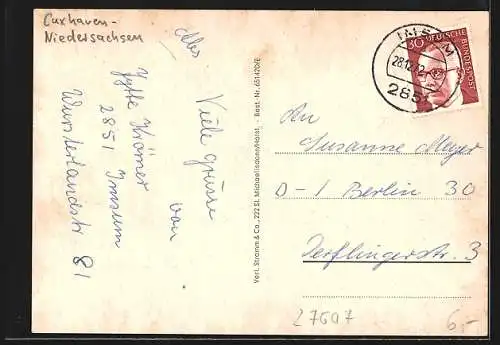 Cuxhaven-
Niedersachsen
Alles
Viele Grüsse
von
Jytte Krömer
2851 Imsum
Wursterlandstr 81
Verl. Stramm & Co., 222 St. Michaelisdonn/Holst. - Best. Nr. 651420/E
30 DEUTSCHE BUNDESPOST
IMSUM
28.12.72
2851
An
Susanne Meyer
D-1 Berlin 30
Derflingerstr. 3
27697
6,-